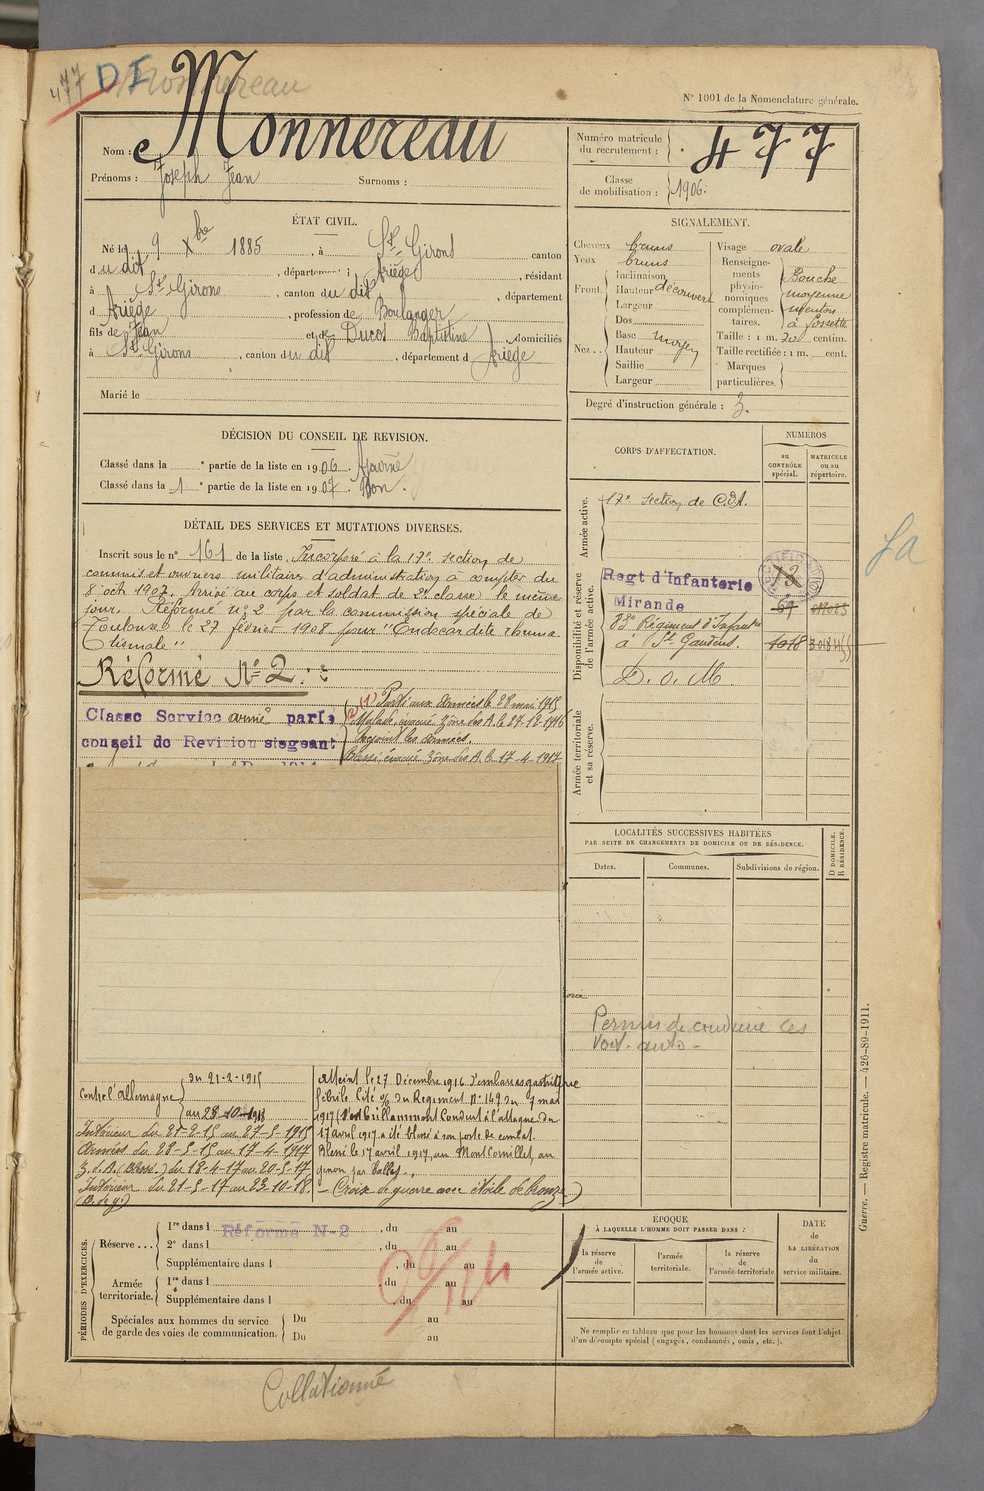 477 D I Monnereau
N° 1001 de la Nomenclature générale.
Nom : Monnereau
Prénoms : Joseph Jean Surnoms :
Numéro matricule du recrutement : 477
Classe de mobilisation : 1906.
ÉTAT CIVIL.
Né le 9 Xbre 1885, à St Girons canton
du dit, département d Ariège, résidant
à St Girons, canton du dit, département
d Ariège, profession de Boulanger
fils de Jean et de Ducos Baptistine domiciliés
à St Girons, canton du dit, département d Ariège
Marié le
SIGNALEMENT.
Cheveux bruns
Yeux bruns
Front. Inclinaison
Hauteur découvert
Largeur
Nez.. Dos
Base moyen
Hauteur
Saillie
Largeur
Visage ovale
Renseignements physionomiques complémentaires. Bouche
moyenne
menton
à fossette
Taille : 1 m. 70 centim.
Taille rectifiée : 1 m. cent.
Marques particulières.
Degré d'instruction générale : 3.
DÉCISION DU CONSEIL DE REVISION.
Classé dans la e partie de la liste en 1906. Ajourné
Classé dans la 1 e partie de la liste en 1907. Bon.
DÉTAIL DES SERVICES ET MUTATIONS DIVERSES.
Inscrit sous le n° 161 de la liste. Incorporé à la 17e section de
commis et ouvriers militaires d'administration à compter du
8 oct 1907. Arrivé au corps et soldat de 2e classe le même
jour. Réformé n° 2 par la commission spéciale de
Toulouse le 27 février 1908 pour "Endocardite rhuma
tismale"
Réformé N° 2.
Classe Service armé par le
conseil de Revision siegeant
(1) Parti aux Armées le 28 mai 1915
Malade, évacué Zône des A. le 27-12-1916
Rejoint les armées.
Blessé, évacué Zône des A. le 17-4-1917
CORPS D'AFFECTATION.
NUMÉROS
au CONTRÔLE spécial.
MATRICULE ou au répertoire.
Armée active.
17e section de C.O.A.
Disponibilité et réserve de l'armée active.
Regt d'Infanterie
Mirande
83e Régiment d'Infanterie
à St Gaudens. 1018
D. o. M.
Armée territoriale et sa réserve.
LOCALITÉS SUCCESSIVES HABITÉES
PAR SUITE DE CHANGEMENTS DE DOMICILE OU DE RÉSIDENCE.
Dates.
Communes.
Subdivisions de région.
D DOMICILE.
R RÉSIDENCE.
Permis de conduire les
voit. auto-
Contre l'Allemagne
du 21-2-1915
au 23-10-1918
Intérieur du 21-2-15 au 27-5-1915
Armées du 28-5-15 au 17-4-1917
Z. d. A. (Blessé.) du 18-4-17 au 20-5-17
Intérieur du 21-5-17 au 23-10-18.
(B. de g.)
Atteint le 27 Décembre 1916 d'embarras gastrique
fébrile Cité o/ du Régiment N° 149 du 7 mai
1917 (S'est brillamment Conduit à l'attaque du
17 avril 1917 a été blessé à son poste de combat.
Blessé le 17 avril 1917, au Mont Cornillet, au
genou par Balles.
- Croix de guerre avec étoile de bronze)
PÉRIODES D'EXERCICES.
Réserve... 1re dans l Réforme N-2, du au
2e dans l, du au
Supplémentaire dans l, du au
Armée territoriale. 1re dans l, du au
Supplémentaire dans l, du au
Spéciales aux hommes du service
de garde des voies de communication. Du au
Du au
ÉPOQUE
À LAQUELLE L'HOMME DOIT PASSER DANS :
la réserve de l'armée active.
l'armée territoriale.
la réserve de l'armée territoriale
DATE DE LA LIBÉRATION du service militaire.
Ne remplir ce tableau que pour les hommes dont les services font l'objet
d'un décompte spécial (engagés, condamnés, omis, etc.).
Guerre. — Registre matricule. — 426-89-1911.
Collationné